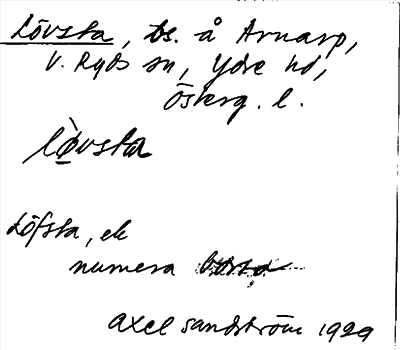 Lövsta, ts. å Arnarp,
V. Ryds sn, Ydre hd,
Österg. l.
lò̱vsta
Löfsta, ek
numera
Axel Sandström 1929